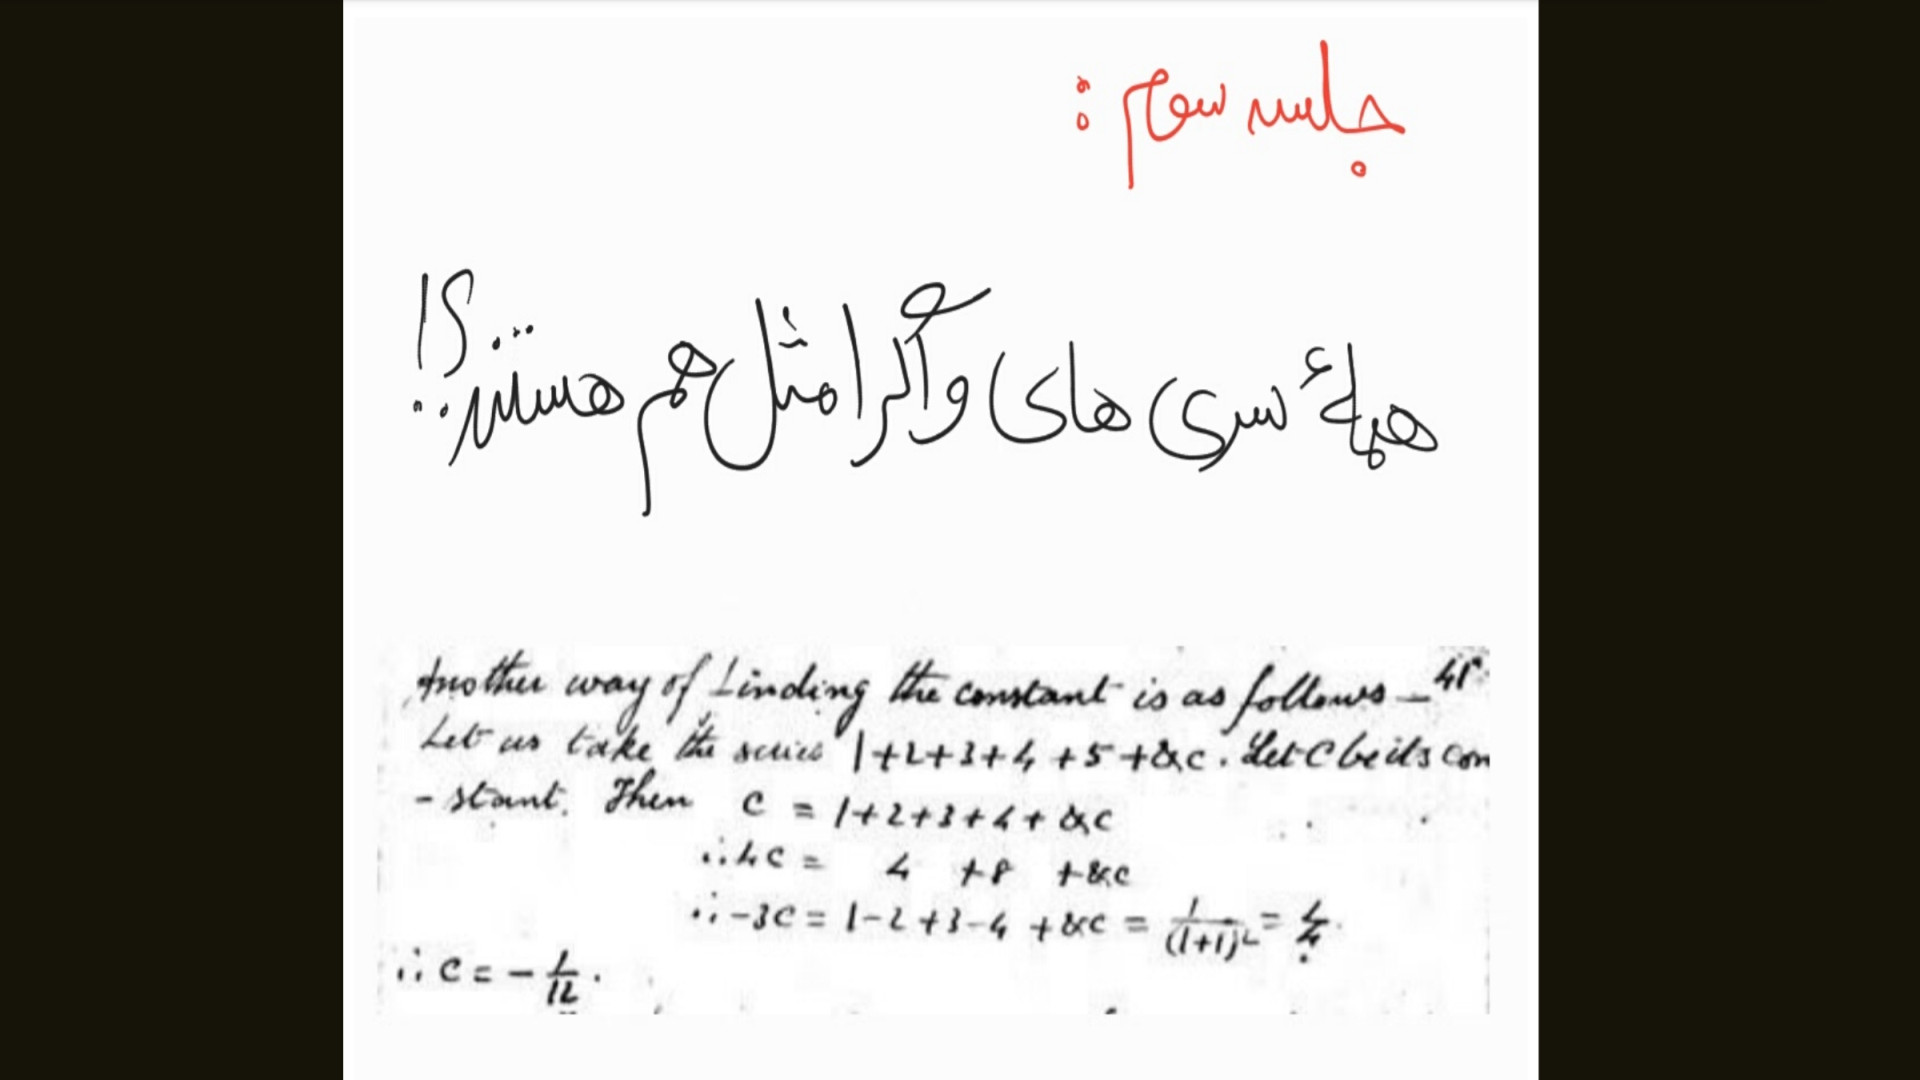 جلسه سوم :
همهٔ سری های واگرا مثل هم هستند..؟!
Another way of finding the constant is as follows — 41
Let us take the series 1+2+3+4+5+&c. Let C be its con
- stant. Then C = 1+2+3+4+&c
∴ 4C = 4 +8 +&c
∴ -3C = 1-2+3-4+&c = 1/(1+1)² = 1/4.
∴ C = -1/12.